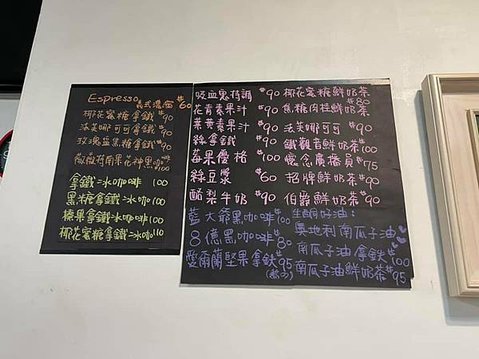 Espresso 義式濃縮 $60
椰花蜜糖拿鐵 $90
法芙娜可可拿鐵 $90
玫瑰 黑糖拿鐵 90
拿鐵=冰咖啡 100
黑糖拿鐵=冰咖啡 100
榛果拿鐵=冰咖啡 100
椰花蜜糖拿鐵=冰咖 110
吸血鬼特調 $90
花青素果汁 $90
葉黃素果汁 $90
綠拿鐵 $90
莓果優格 $100
綠豆漿 $60
酪梨牛奶 $90
藍大爺黑咖啡 $100
8億黑咖啡 $80
愛爾蘭堅果拿鐵 $95
椰花蜜糖鮮奶茶 $90
焦糖肉桂鮮奶茶 $80
法芙娜可可 $90
鐵觀音鮮奶茶 $100
懷念廣播員 $75
招牌鮮奶茶 $90
伯爵鮮奶茶 $90
生酮好油:
奧地利南瓜子油
南瓜子油拿鐵 $100
南瓜子油鮮奶茶 $95